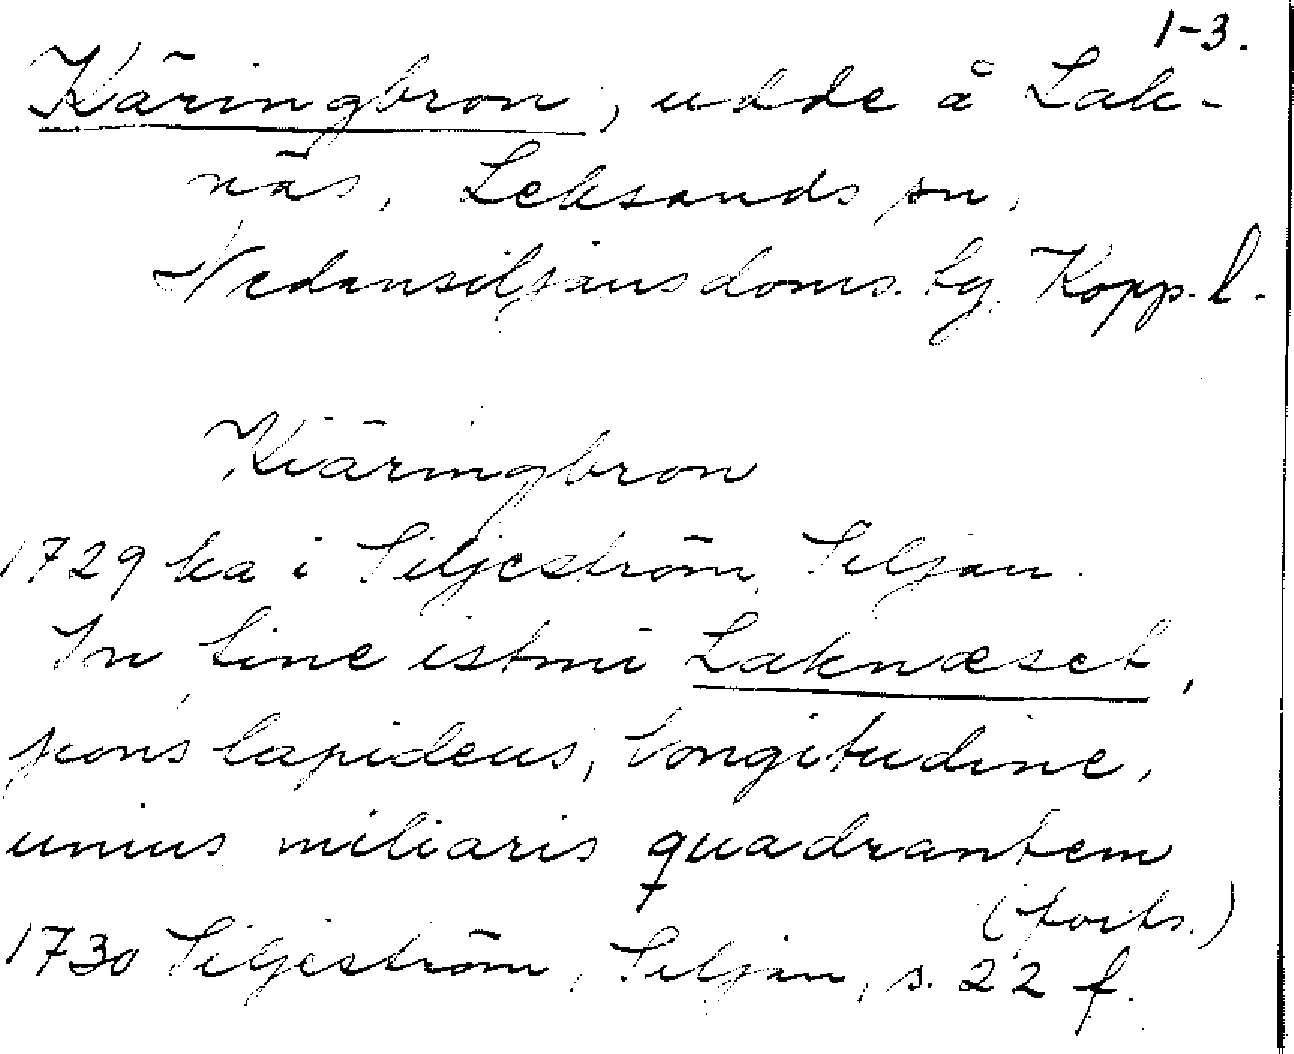 1-3.
Käringbron, udde å Lak-
näs, Leksands sn,
Nedansiljans doms. tg, Kopp. l.
Kiäringbron
1729 ka i Siljeström, Siljan.
In fine istmi Laknæset,
pons lapideus, longitudine,
unius miliaris quadrantem
(forts.)
1730 Siljeström, Siljan, s. 22 f.